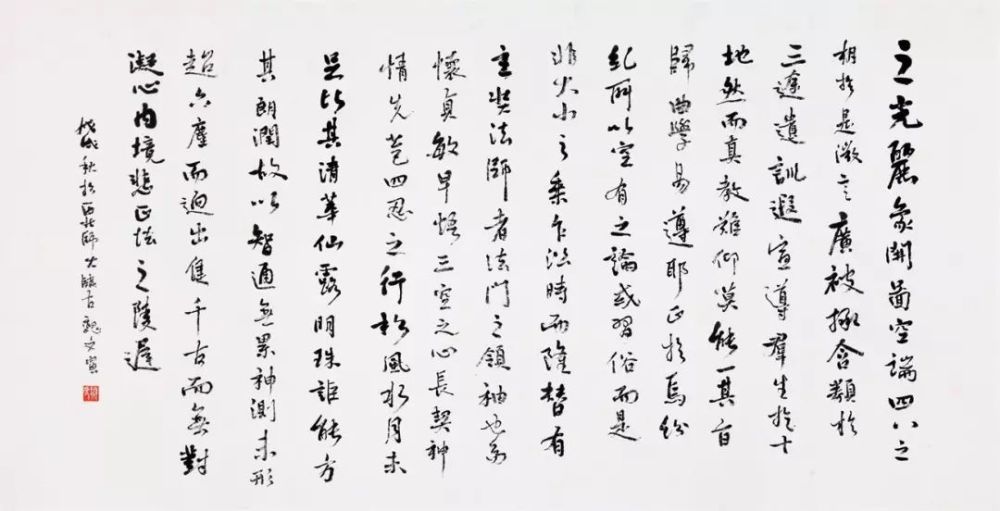 之光麗象開圖空端四八之
相於是微言廣被拯含類於
三途遺訓遐宣導群生於十
地然而真教難仰莫能一其旨
歸曲學易遵耶正於焉紛
糺所以空有之論或習俗而是
非大小之乘乍沿時而隆替有
玄奘法師者法門之領袖也幼
懷貞敏早悟三空之心長契神
情先苞四忍之行松風水月未
足比其清華仙露明珠詎能方
其朗潤故以智通無累神測未形
超六塵而迥出隻千古而無對
凝心內境悲正法之陵遲
戊戌秋於西北師大臨古魏文